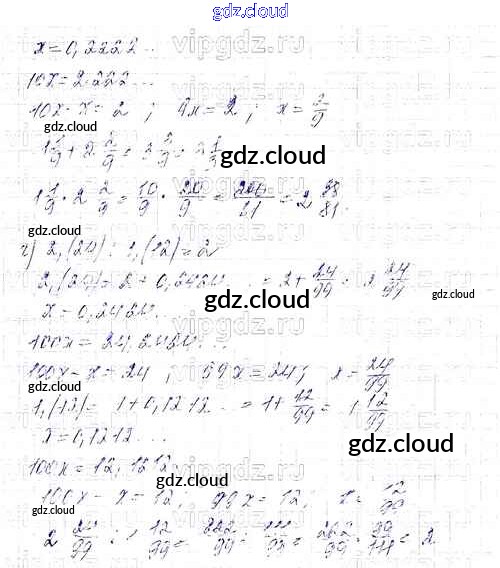 gdz.cloud
x=0,2222...
10x=2.222...
10x-x=2 ; 9x=2; x=2/9
gdz.cloud
1 1/9+2 2/9=3 3/9=3 1/3
gdz.cloud
1 1/9·2 2/9=10/9·20/9=200/81=2 38/81.
gdz.cloud
2,(24):1,(12)=2
2,(24)=2+0,2424...=2+24/99=2 24/99
gdz.cloud gdz.cloud
x=0,2424...
gdz.cloud
100x=24,2424...
100x-x=24 ; 99x=24; x=24/99
gdz.cloud
1,(12)=1+0,1212...=1+12/99=1 12/99
x=0,1212...
gdz.cloud
100x=12,1212
100x-x=12; 99x=12; x=12/99
gdz.cloud
2 24/99:1 12/99=222/99:111/99=222/99·99/111=2.
gdz.cloud